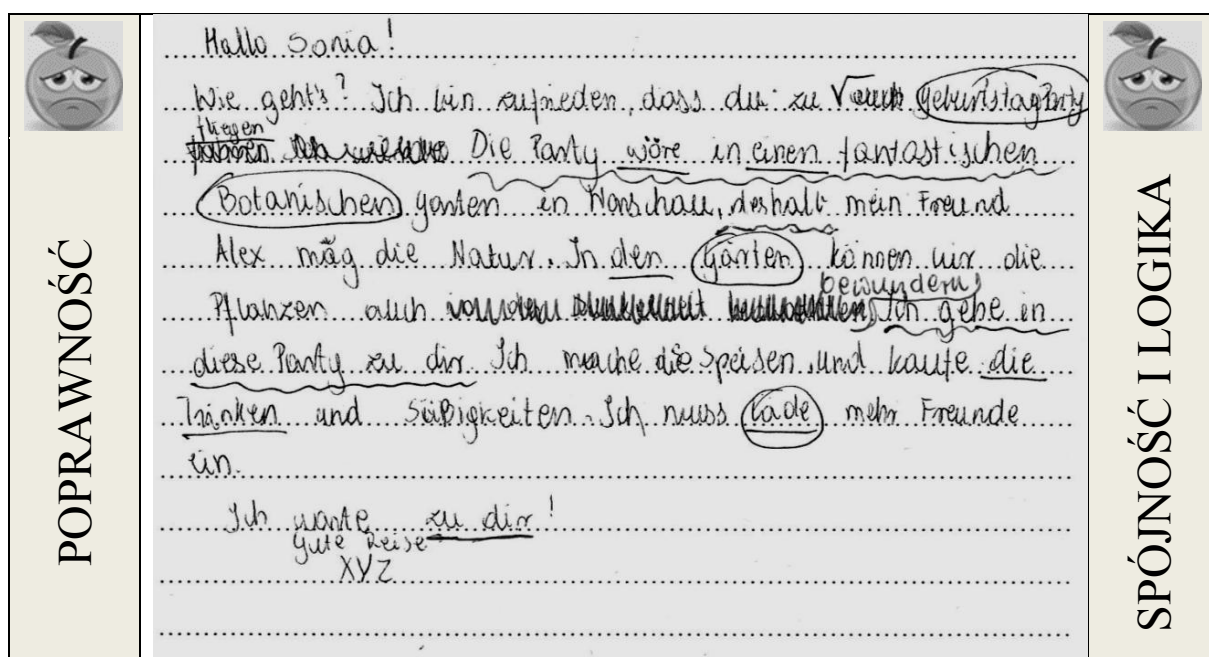 POPRAWNOŚĆ
Hallo Sonia!
Wie geht's? Ich bin zufrieden, dass du zu Geburtstagparty
fliegen
Die Party wöre in einen fantastischen
Botanischen garten in Warschau, deshalb mein Freund
Alex mäg die Natur. In den Gärten können wir die
bewundern
Pflanzen auch Ich gehe in
diese Party zu dir. Ich mache die Speisen und kaufe die
Trinken und Süßigkeiten. Ich muss lade mehr Freunde
ein.
Ich warte zu dir!
Gute Reise
XYZ
SPÓJNOŚĆ I LOGIKA